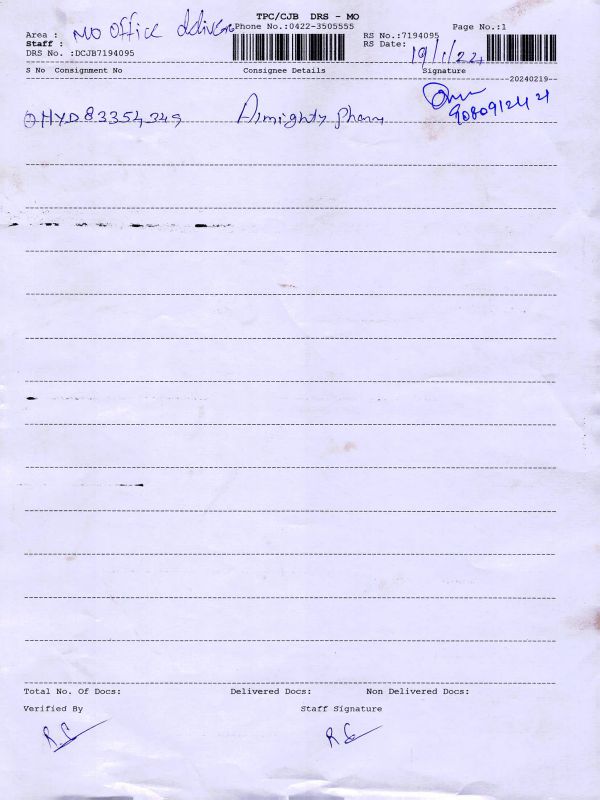 TPC/CJB DRS - MO
Area : MO Office delivery Phone No.:0422-3505555 RS No.:7194095 Page No.:1
Staff : RS Date:
DRS No. :DCJB7194095
S No Consignment No Consignee Details Signature
--20240219--
HYD83354349 Almighty pharm
Total No. Of Docs: Delivered Docs: Non Delivered Docs:
Verified By Staff Signature
R.S R S